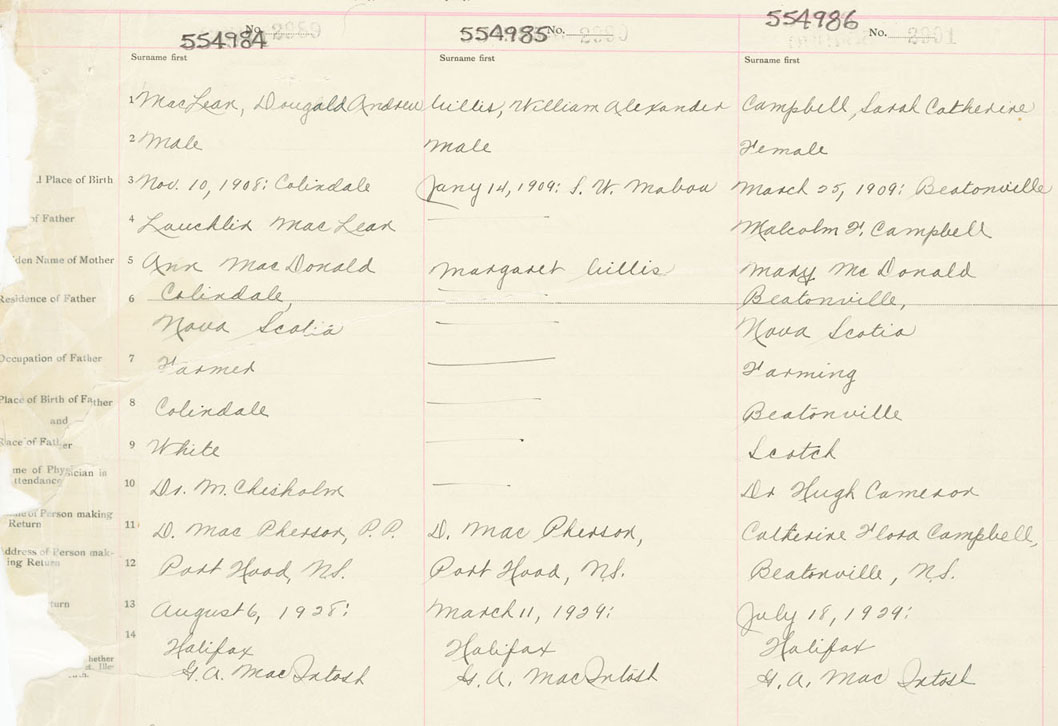 554984 No.
554985 No. 2990
554986 No. 2991
Surname first Surname first Surname first
1 MacLean, Dougald Andrew Gillis, William Alexander Campbell, Sarah Catherine
2 Male Male Female
Place of Birth 3 Nov. 10, 1908: Colindale Jany 14, 1909: S. W. Mabou March 25, 1909: Beatonville
of Father 4 Lauchlin MacLean Malcolm F. Campbell
den Name of Mother 5 Ann MacDonald Margaret Gillis Mary McDonald
Residence of Father 6 Colindale, Beatonville,
Nova Scotia Nova Scotia
Occupation of Father 7 Farmer Farming
Place of Birth of Father 8 Colindale Beatonville
and
Race of Father 9 White Scotch
me of Physician in
ttendance 10 Dr. M. Chisholm Dr Hugh Cameron
of Person making
Return 11 D. Mac Pherson, P.P. D. Mac Pherson, Catherine Flora Campbell,
Address of Person mak-
ing Return 12 Port Hood, N.S. Port Hood, N.S. Beatonville, N.S.
turn 13 August 6, 1928: March 11, 1929: July 18, 1929:
14 Halifax Halifax Halifax
hether G. A. MacIntosh G. A. MacIntosh G. A. Mac Intosh